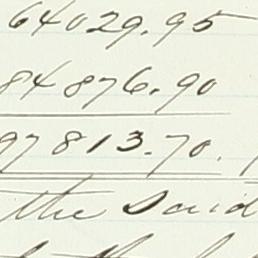 64029.95
84876.90
97813.70.
the said